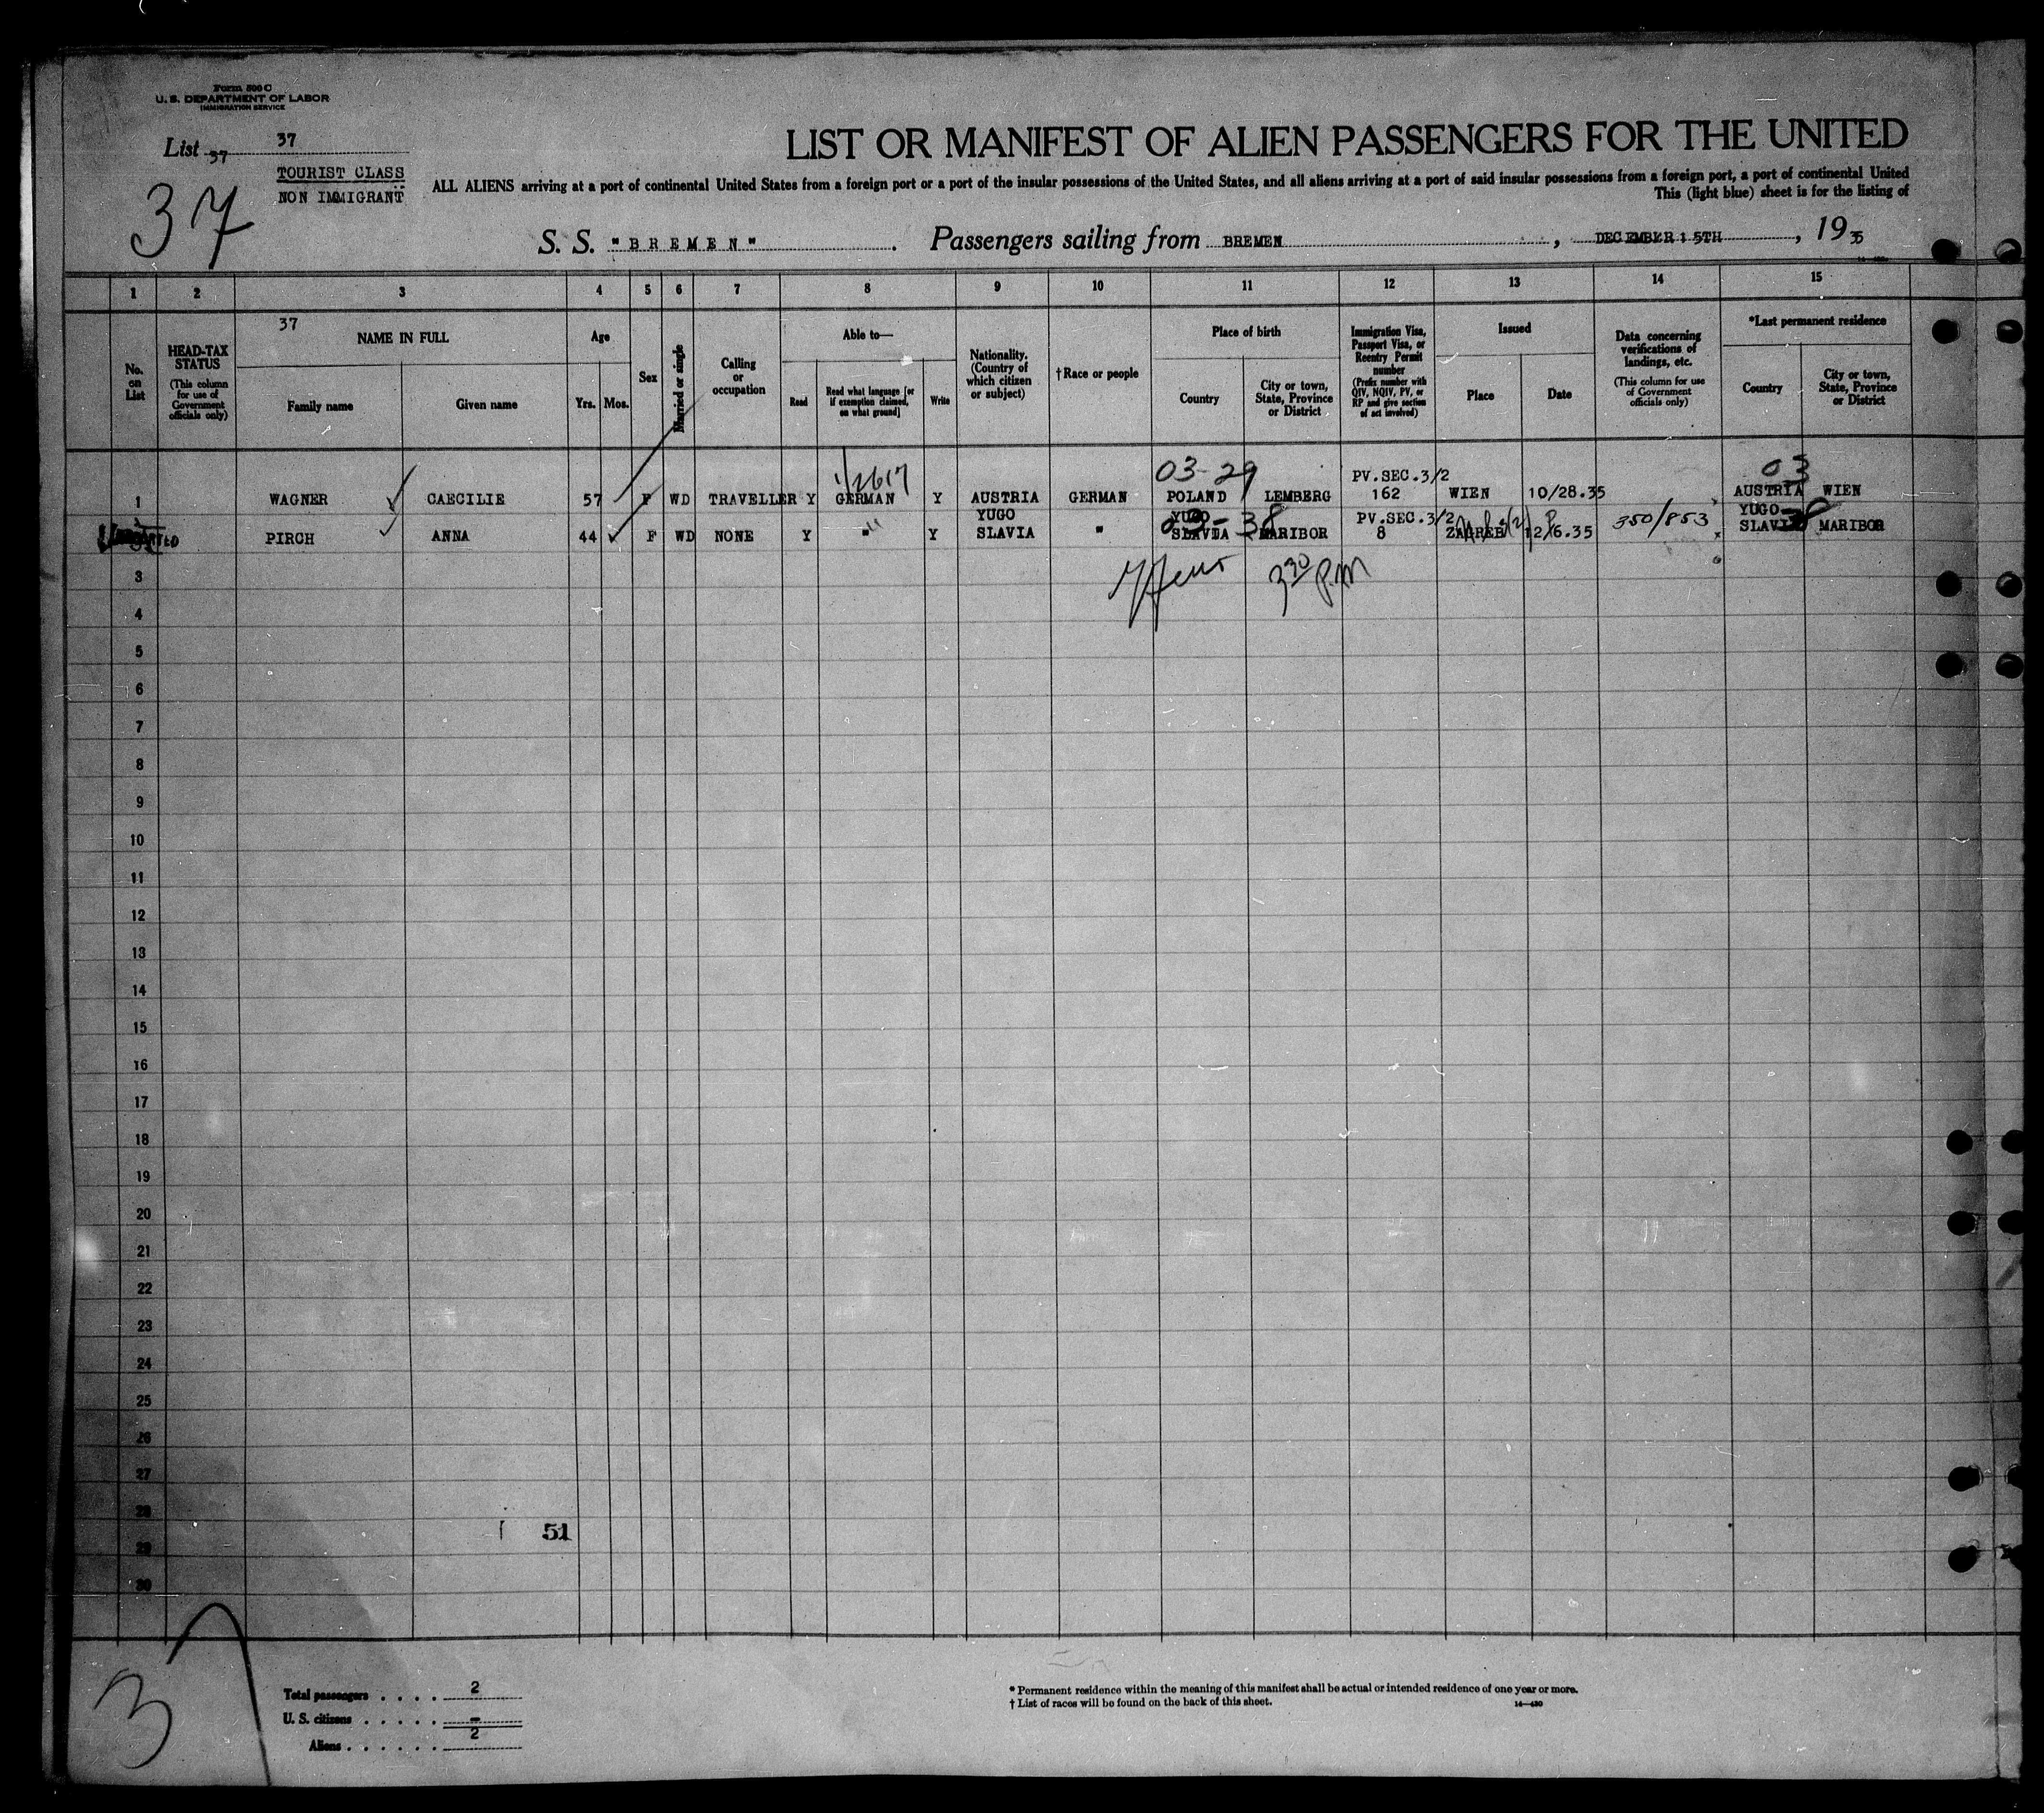 Form 500 C
U. S. DEPARTMENT OF LABOR
IMMIGRATION SERVICE
List 37 37
TOURIST CLASS
NON IMMIGRANT
37
LIST OR MANIFEST OF ALIEN PASSENGERS FOR THE UNITED
ALL ALIENS arriving at a port of continental United States from a foreign port or a port of the insular possessions of the United States, and all aliens arriving at a port of said insular possessions from a foreign port, a port of continental United
This (light blue) sheet is for the listing of
S. S. "BREMEN". Passengers sailing from BREMEN, DECEMBER 15TH, 1935
1 2 3 4 5 6 7 8 9 10 11 12 13 14 15
No. on List
HEAD-TAX STATUS (This column for use of Government officials only)
37
NAME IN FULL
Family name
Given name
Age
Yrs. Mos.
Sex
Married or single
Calling or occupation
Able to—
Read
Read what language [or if exemption claimed, on what ground]
Write
Nationality. (Country of which citizen or subject)
†Race or people
Place of birth
Country
City or town, State, Province or District
Immigration Visa, Passport Visa, or Reentry Permit number (Prefix number with QIV, NQIV, PV, or RP and give section of act involved)
Issued
Place
Date
Data concerning verifications of landings, etc. (This column for use of Government officials only)
*Last permanent residence
Country
City or town, State, Province or District
03-29 PV.SEC.3/2 03
1 WAGNER CAECILIE 57 F WD TRAVELLER Y GERMAN Y AUSTRIA GERMAN POLAND LEMBERG 162 WIEN 10/28.35 AUSTRIA WIEN
YUGO YUGO PV.SEC.3/2 YUGO
PIRCH ANNA 44 F WD NONE Y " Y SLAVIA " SLAVIA MARIBOR 8 ZAGREB 12/6.35 350/853 SLAVIA MARIBOR
03-38 38
3 3 30 P.M
4
5
6
7
8
9
10
11
12
13
14
15
16
17
18
19
20
21
22
23
24
25
26
27
28
51
29
30
37
Total passengers . . . . 2
U. S. citizens . . . . . –
Aliens . . . . . . 2
* Permanent residence within the meaning of this manifest shall be actual or intended residence of one year or more.
† List of races will be found on the back of this sheet.
14—430